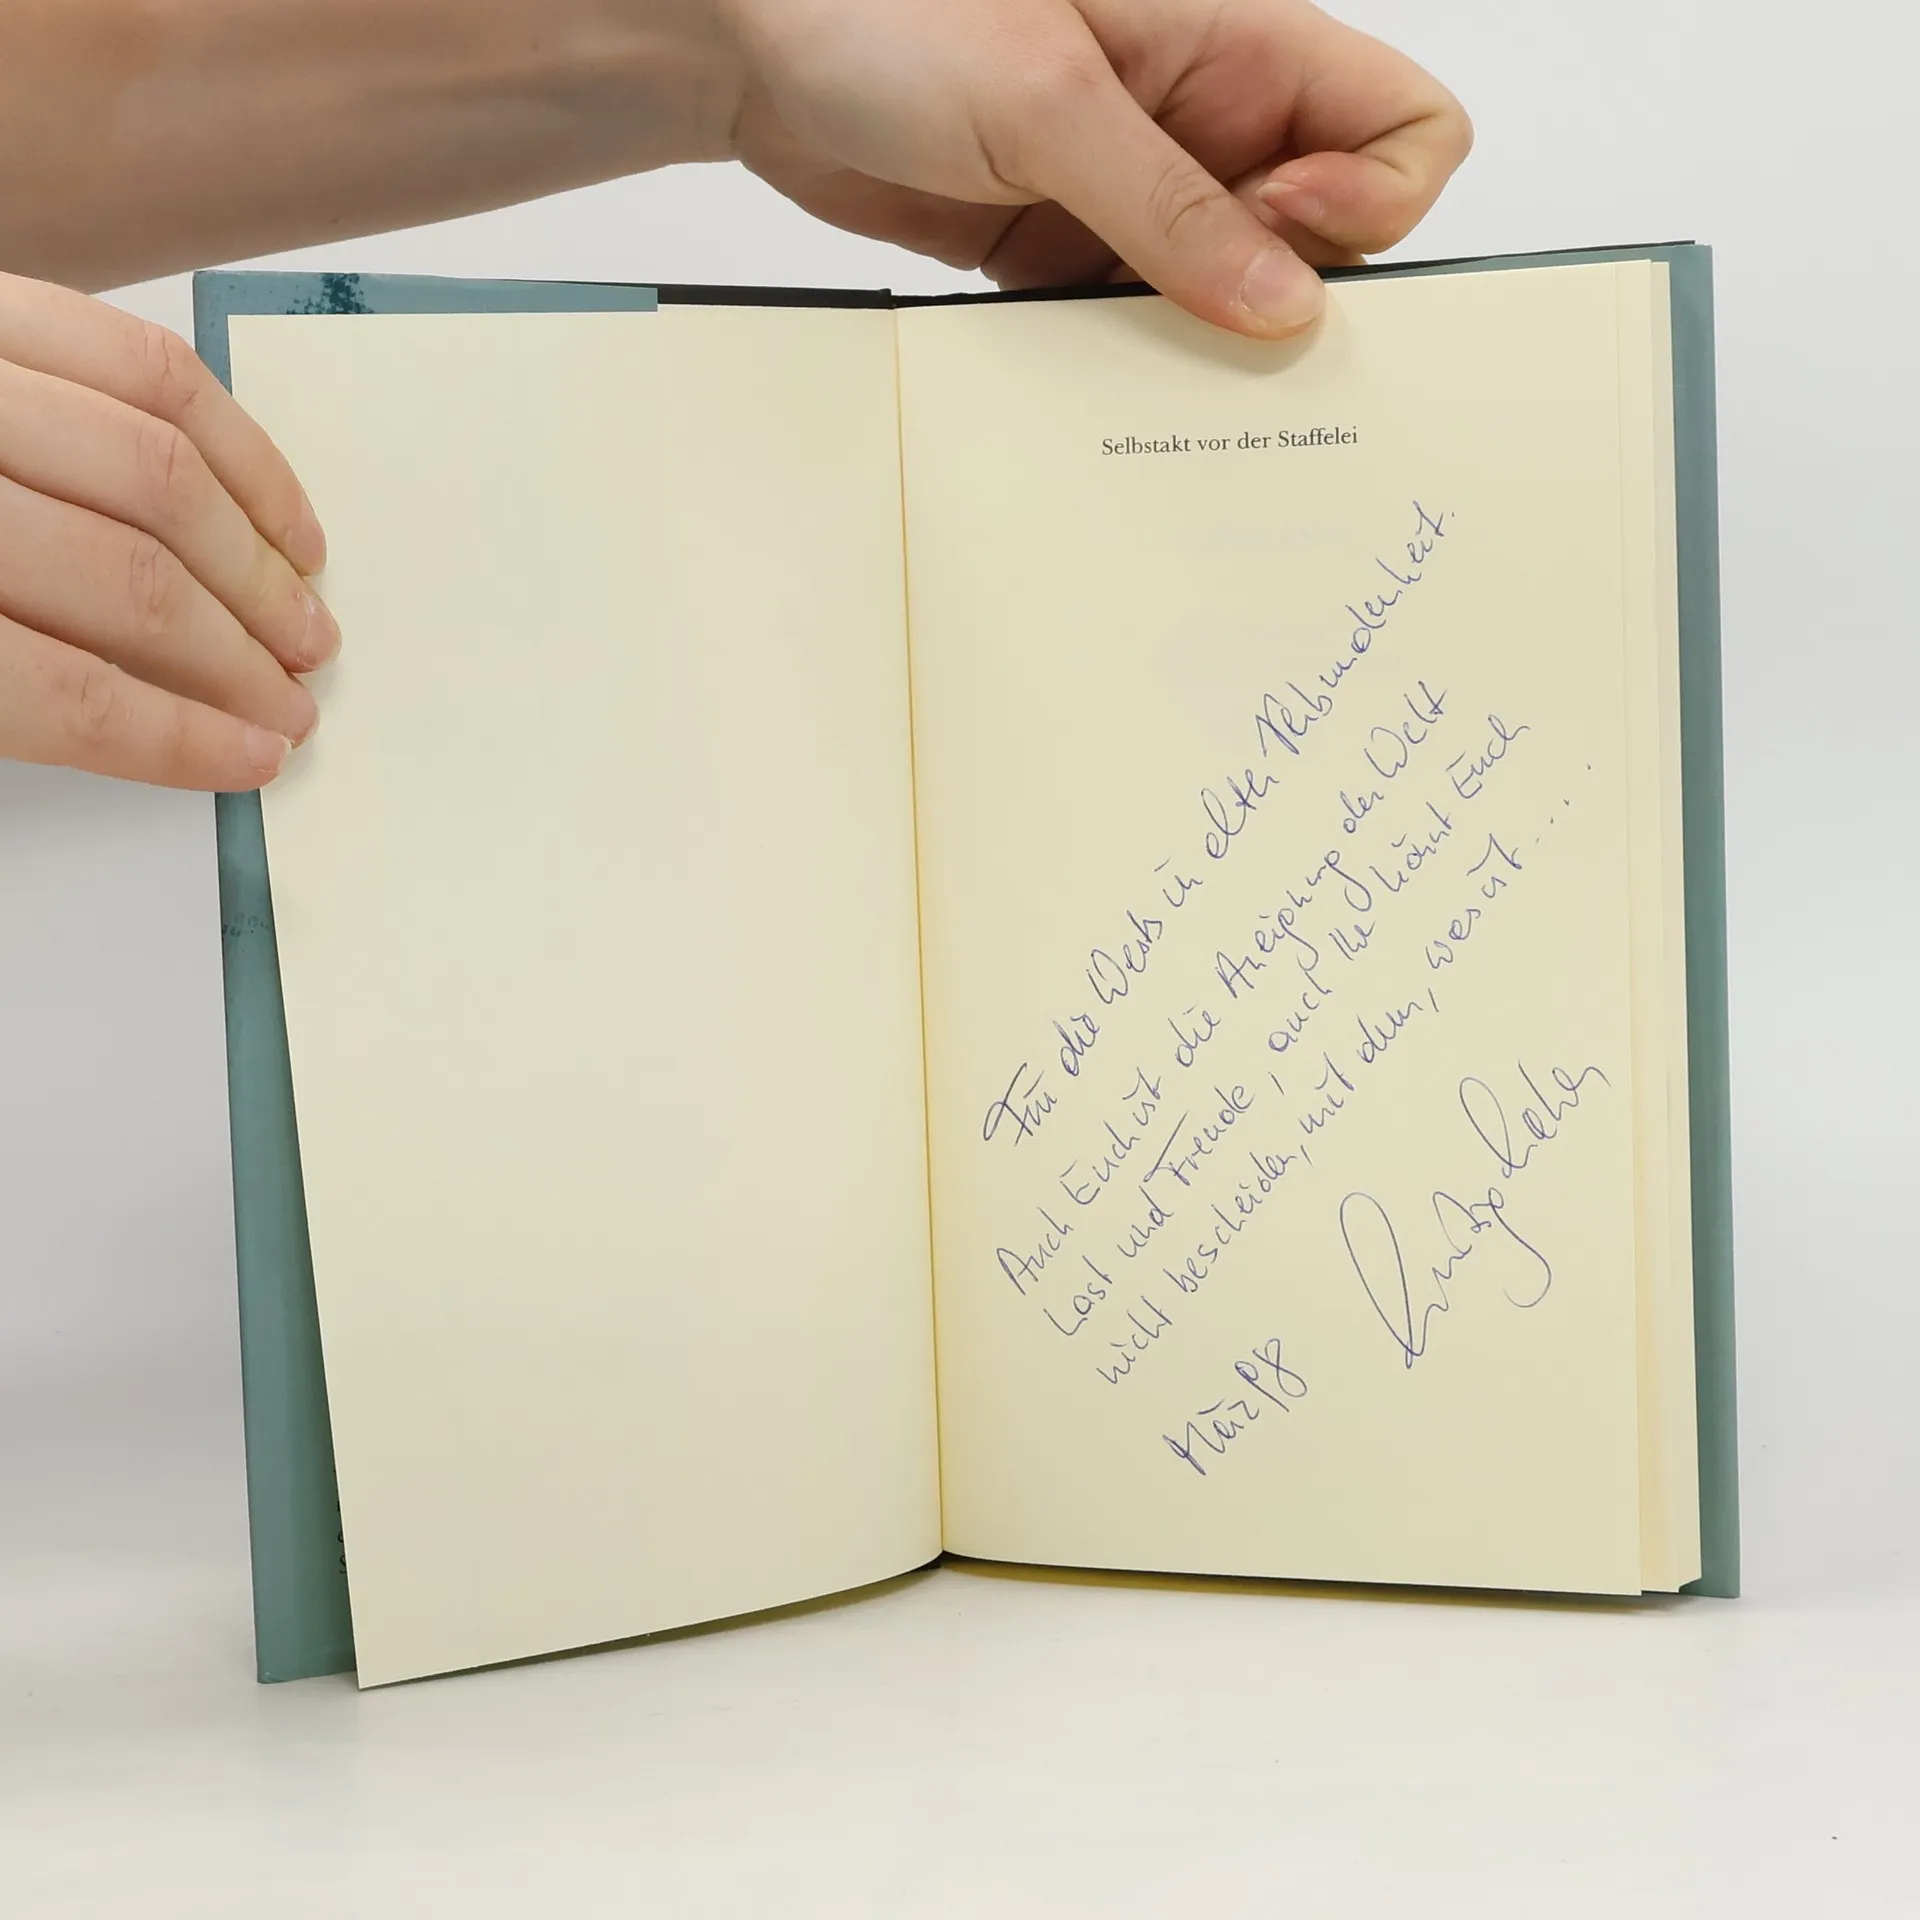 Selbstakt vor der Staffelei
Für die Wests in alter Verbundenheit.
Auch Euch ist die Aneignung der Welt
Last und Freude, auch Ihr könnt Euch
nicht bescheiden, mit dem, was ist....
März 98